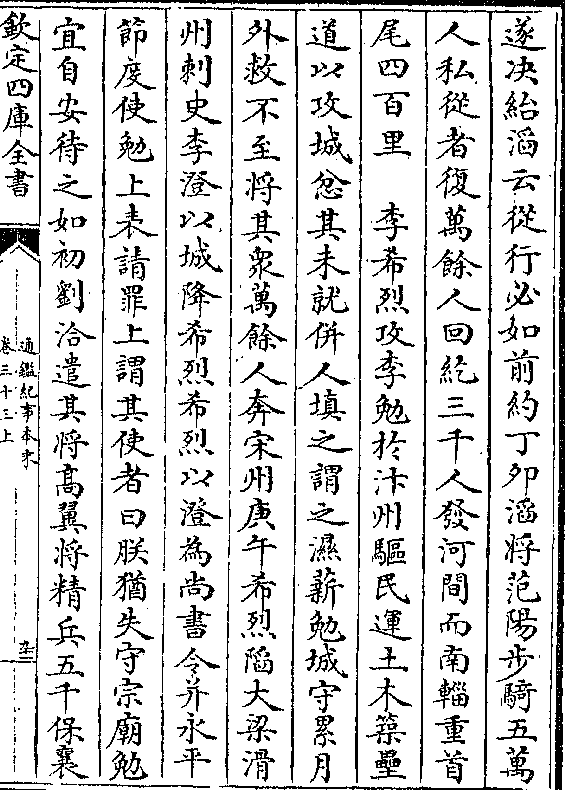 遂决紿滔云從行必如前約丁夘滔將范陽步騎五萬
人私從者復萬餘人回紇三千人發河間而南輜重首
尾四百里　李希烈攻李勉於汴州驅民運土木築壘
道以攻城忿其未就併人填之謂之濕薪勉城守累月
外救不至將其衆萬餘人奔宋州庚午希烈陷大梁滑
州刺史李澄以城降希烈希烈以澄為尚書令兼永平
節度使勉上表請罪上謂其使者曰朕猶失守宗廟勉
宜自安待之如初劉洽遣其將高翼將精兵五千保襄
欽定四庫全書
通鑑紀事本末
卷三十三上